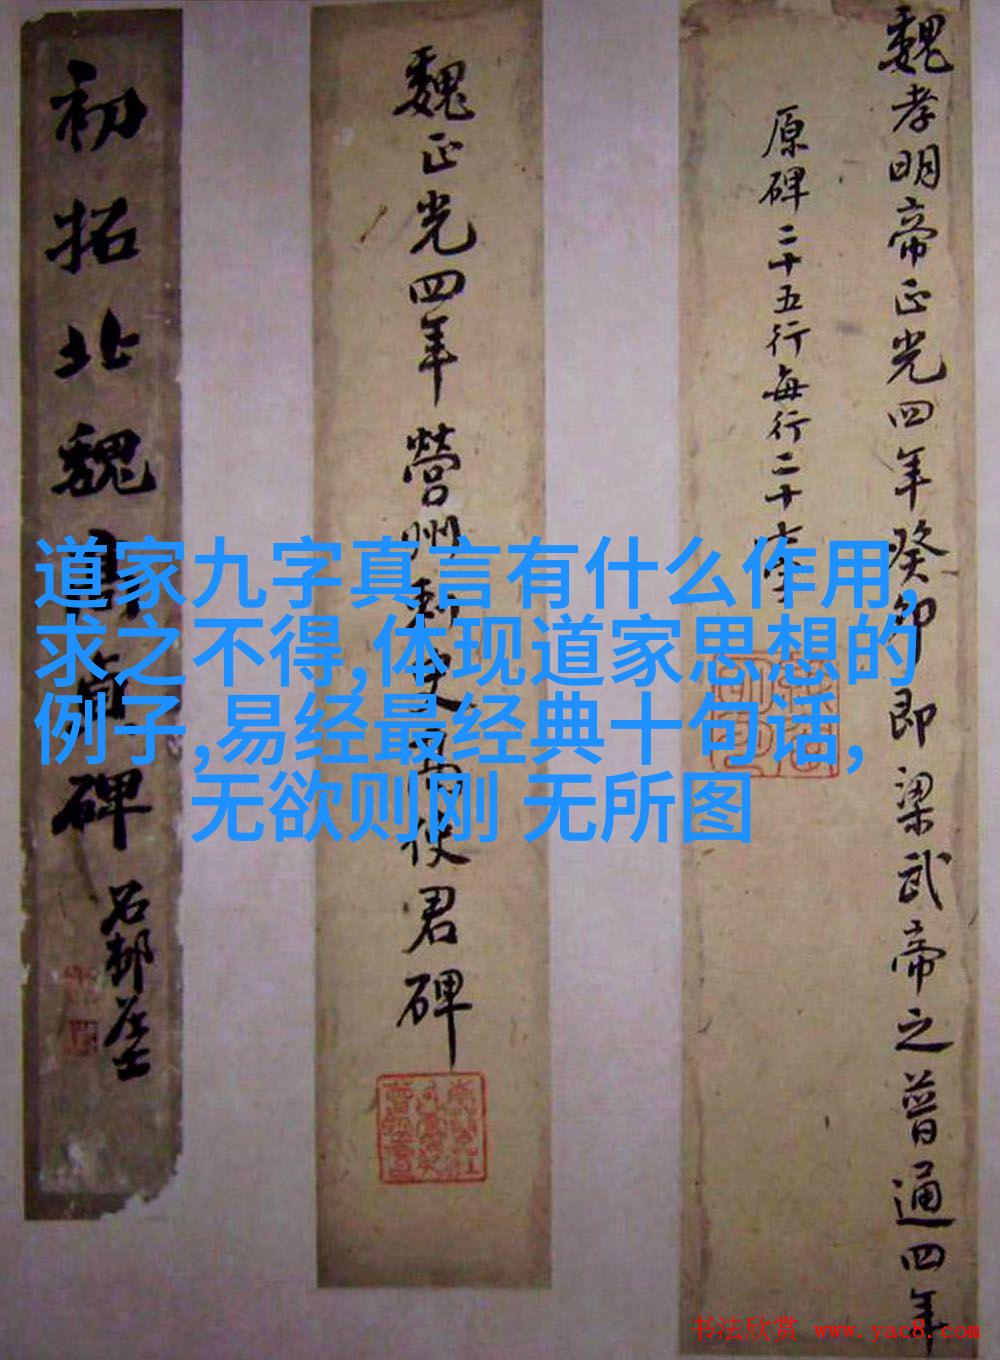 魏孝明帝正光四年癸卯即梁武帝之普通四年
原碑二十五行每行二十
魏正光四年營州刺史高使君碑
初拓北魏高
碑
石邨
道家九字真言有什么作用,
求之不得,体现道家思想的
例子,易经最经典十句话,
无欲则刚 无所图
书法欣赏 www.yac8.com